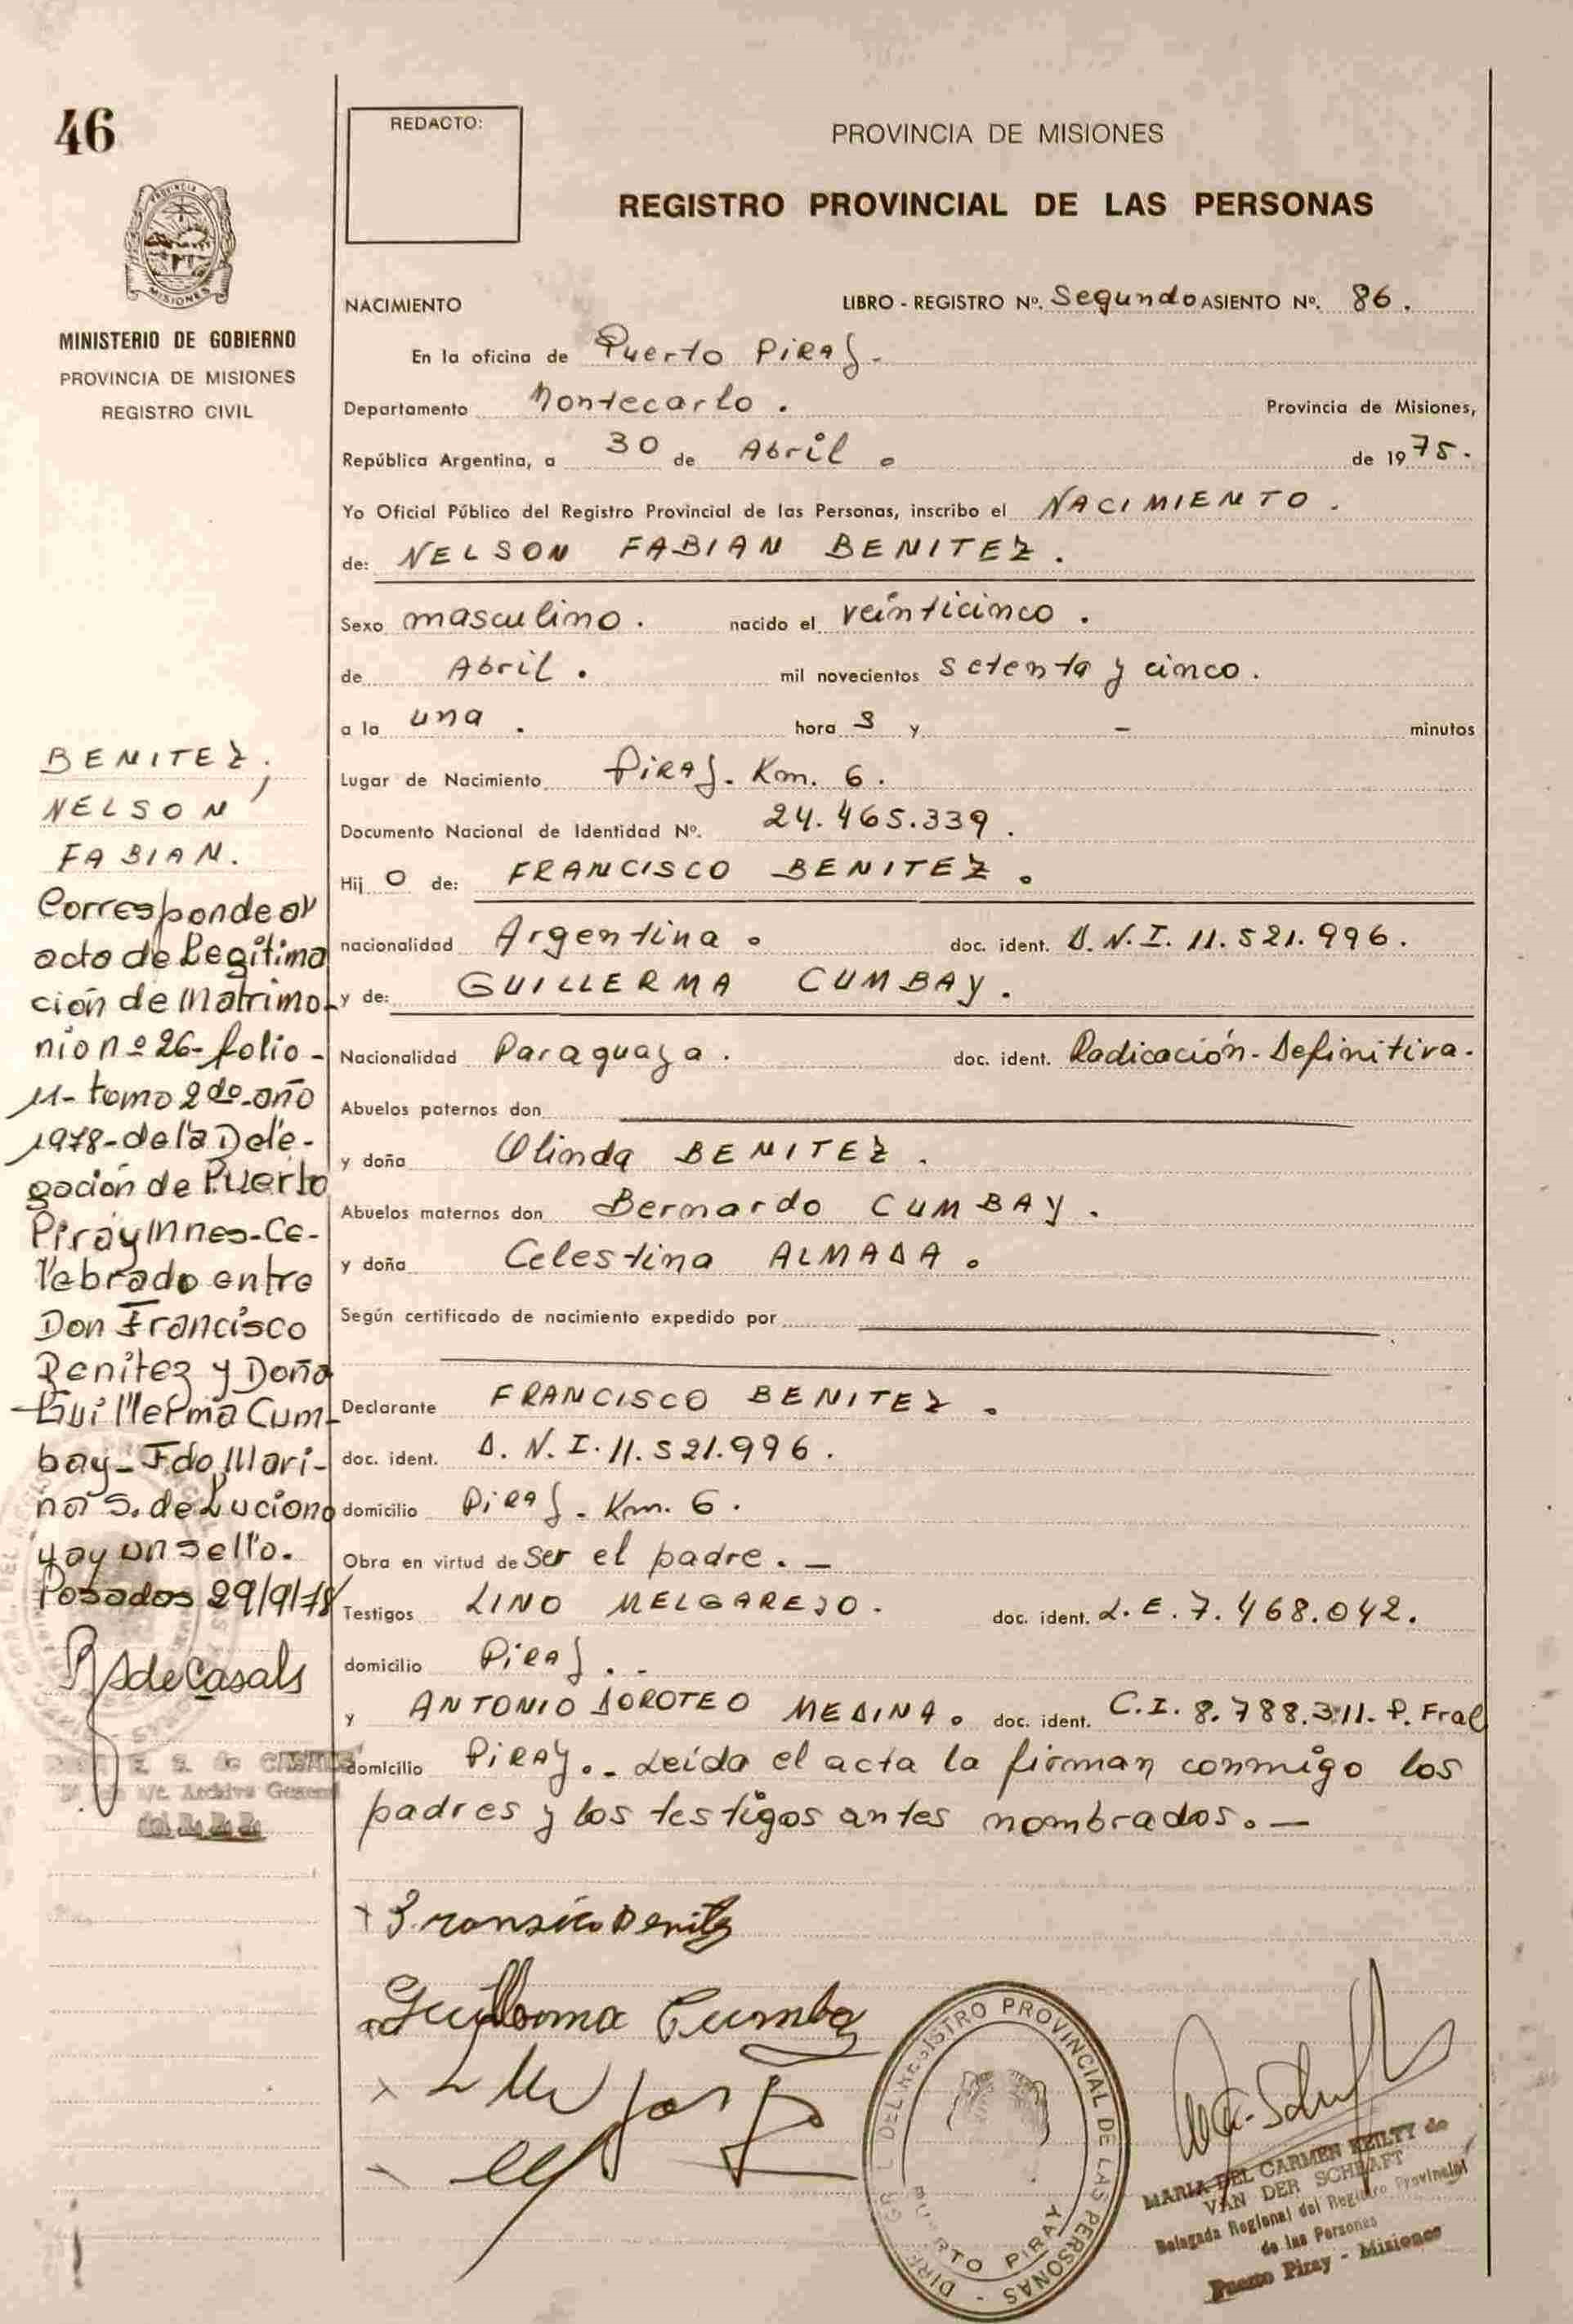 46
PROVINCIA
MISIONES
MINISTERIO DE GOBIERNO
PROVINCIA DE MISIONES
REGISTRO CIVIL
BENITEZ,
NELSON
FABIAN.
Corresponde al
acta de Legitima
ción de Matrimo-
nio nº 26- folio-
11- tomo 2do-año
1978-de la Dele-
gación de Puerto
Piray Mnes-Ce-
lebrado entre
Don Francisco
Benítez y Doña
Guillerma Cum-
bay-Fdo Mari-
na S. de Luciano
Hay un sello.
Posadas 29/9/78
de Casals
de CASALS
a/c. Archivo General
del R.P.P.
REDACTO:
PROVINCIA DE MISIONES
REGISTRO PROVINCIAL DE LAS PERSONAS
NACIMIENTO LIBRO - REGISTRO Nº. Segundo ASIENTO Nº. 86.
En la oficina de Puerto Piray.
Departamento Montecarlo. Provincia de Misiones,
República Argentina, a 30 de Abril. de 1975.
Yo Oficial Público del Registro Provincial de las Personas, inscribo el NACIMIENTO.
de: NELSON FABIAN BENITEZ.
Sexo masculino. nacido el veinticinco.
de Abril. mil novecientos setenta y cinco.
a la una. hora s y - minutos
Lugar de Nacimiento Piray. Km. 6.
Documento Nacional de Identidad Nº. 24.465.339.
Hijo de: FRANCISCO BENITEZ.
nacionalidad Argentina. doc. ident. D.N.I. 11.521.996.
y de: GUILLERMA CUMBAY.
Nacionalidad Paraguaya. doc. ident. Radicación-Definitiva.
Abuelos paternos don
y doña Olinda BENITEZ.
Abuelos maternos don Bernardo CUMBAY.
y doña Celestina ALMADA.
Según certificado de nacimiento expedido por
Declarante FRANCISCO BENITEZ.
doc. ident. D.N.I. 11.521.996.
domicilio Piray. Km. 6.
Obra en virtud de ser el padre.-
Testigos LINO MELGAREJO. doc. ident. L.E. 7.468.042.
domicilio Piray.-
y ANTONIO DOROTEO MEDINA. doc. ident. C.I. 8.788.311. P. Fral
domicilio Piray.- Leída el acta la firman conmigo los
padres y los testigos antes nombrados.-
Fransico Benitez
Guillerma Cumba
DIRE GRL DEL REGISTRO PROVINCIAL DE LAS PERSONAS -
PUERTO PIRAY
MARIA DEL CARMEN KEILTY de
VAN DER SCHRAFT
Delegada Regional del Registro Provincial
de las Personas
Puerto Piray - Misiones